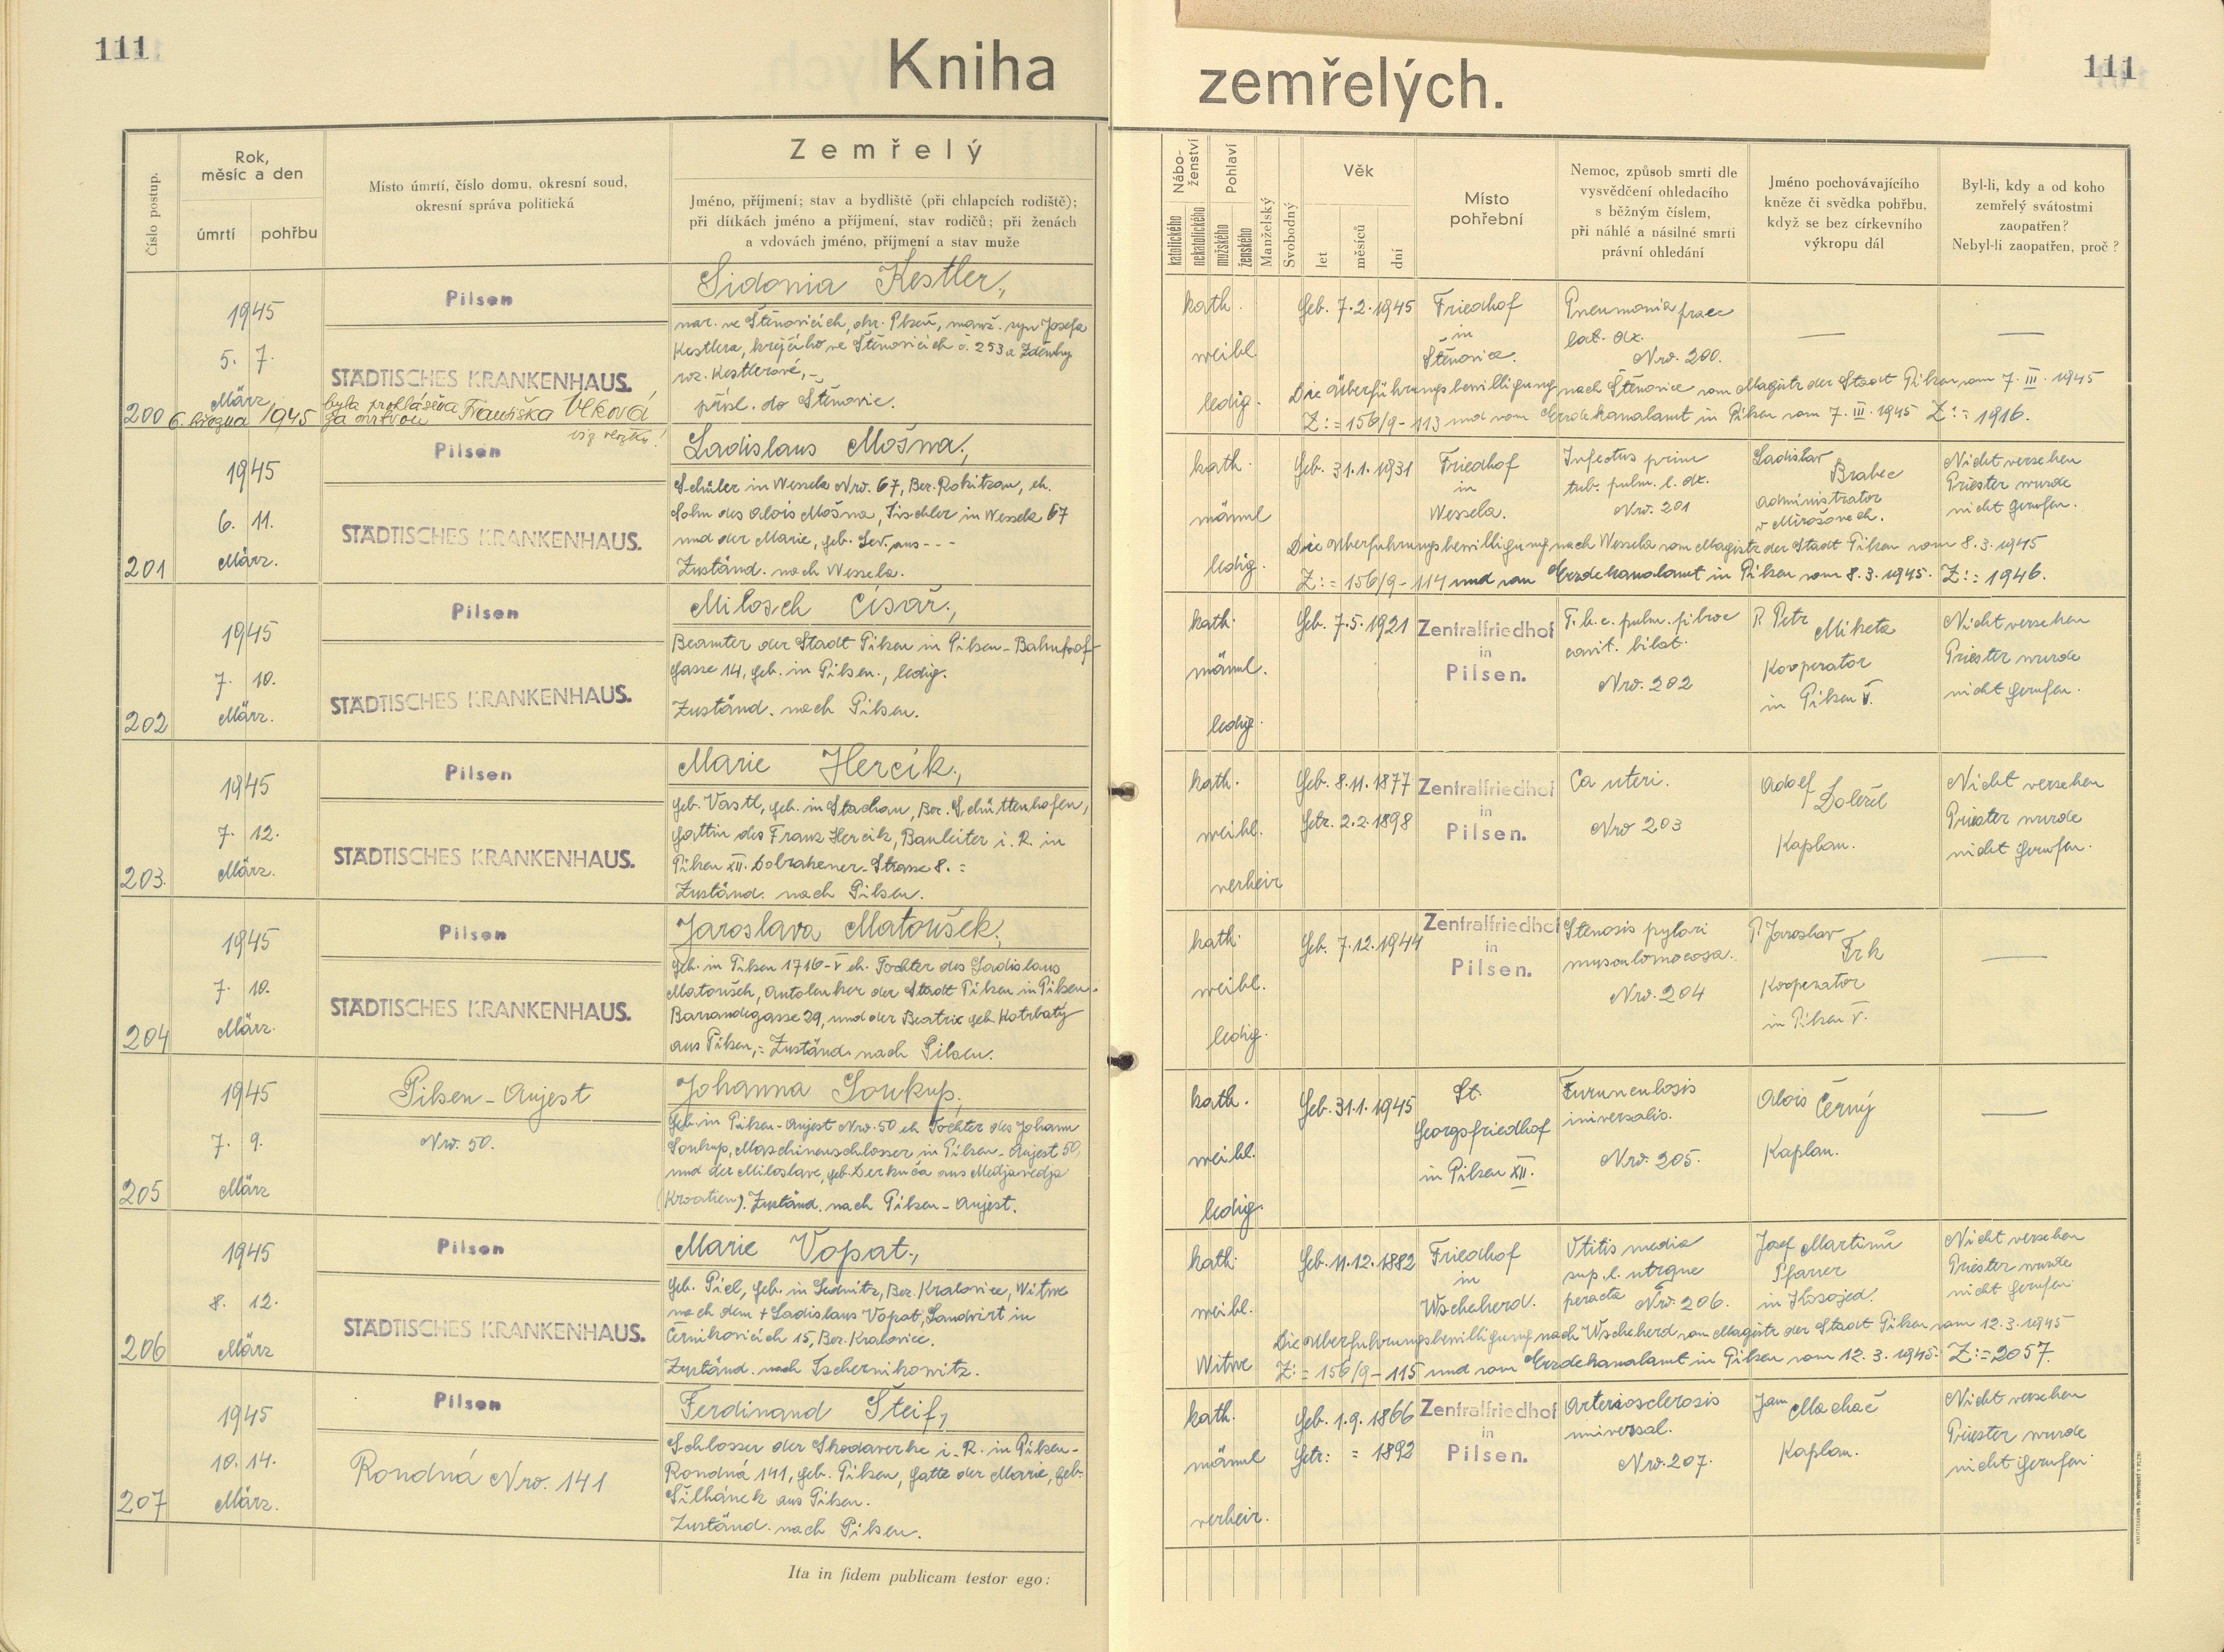 111
Kniha
zemřelých.
111
Číslo postup.
Rok,
měsíc a den
úmrtí
pohřbu
Místo úmrtí, číslo domu, okresní soud,
okresní správa politická
Zemřelý
Jméno, příjmení; stav a bydliště (při chlapcích rodiště);
při dítkách jméno a příjmení, stav rodičů; při ženách
a vdovách jméno, příjmení a stav muže
Nábo-
ženství
katolického
nekatolického
Pohlaví
mužského
ženského
Manželský
Svobodný
Věk
let
měsíců
dní
Místo
pohřební
Nemoc, způsob smrti dle
vysvědčení ohledacího
s běžným číslem,
při náhlé a násilné smrti
právní ohledání
Jméno pochovávajícího
kněze či svědka pohřbu,
když se bez církevního
výkropu dál
Byl-li, kdy a od koho
zemřelý svátostmi
zaopatřen?
Nebyl-li zaopatřen, proč?
200
1945
5. 7.
März
Pilsen
STÄDTISCHES KRANKENHAUS.
6. března 1945 byla prohlášena
za mrtvou Františka Vlková
viz vložku!
Sidonia Kestler,
nar. ve Štěnovicích, okr. Plzeň, manž. syn Josefa
Kestlera, krejčího ve Štěnovicích č. 253 a Zdeňky
roz. Kestlerové,
přísl. do Štěnovic.
kath.
weibl.
ledig.
Geb. 7.2.1945
Friedhof
in
Štěnovice.
Pneumonia praec
lat. dx.
Nro. 200.
—
—
Die Überführungsbewilligung nach Štěnovice vom Magistr der Stadt Pilsen vom 7. III. 1945
Z:= 156/9-113 und vom Erzdekanalamt in Pilsen vom 7. III. 1945 Z:= 1916.
201
1945
6. 11.
März.
Pilsen
STÄDTISCHES KRANKENHAUS.
Ladislaus Mošna,
Schüler in Wessela Nro. 67, Bez. Rokitzan, eh.
Sohn des Alois Mošna, Tischler in Wessela 67
und der Marie, geb. Lev. aus - - -
Zuständ. nach Wessela.
kath.
männl
ledig.
Geb. 31.1.1931
Friedhof
in
Wessela.
Infectus prim
tub. pulm. l. dx.
Nro. 201
Ladislav
Brabec
administrator
v Mirošovech.
Nicht versehen
Priester wurde
nicht gerufen.
Die Überführungsbewilligung nach Wessela vom Magistr der Stadt Pilsen vom 8.3.1945
Z:= 156/9-114 und vom Erzdekanalamt in Pilsen vom 8.3.1945. Z:= 1946.
202
1945
7. 10.
März.
Pilsen
STÄDTISCHES KRANKENHAUS.
Milosch Císař,
Beamter der Stadt Pilsen in Pilsen-Bahnhof-
gasse 14, geb. in Pilsen., ledig.
Zuständ. nach Pilsen.
kath.
männl.
ledig.
Geb. 7.5.1921
Zentralfriedhof
in
Pilsen.
T.b.c. pulm. fibroc
cavit. bilat.
Nro. 202
P. Petr
Miketa
Kooperator
in Pilsen V.
Nicht versehen
Priester wurde
nicht gerufen.
203.
1945
7. 12.
März.
Pilsen
STÄDTISCHES KRANKENHAUS.
Marie Hercik,
geb. Vastl, geb. in Stachau, Bez. Schüttenhofen,
Gattin des Franz Hercik, Bauleiter i. R. in
Pilsen XII. Dobrakener-Strasse 8. =
Zuständ. nach Pilsen.
kath.
weibl.
verheir
Geb. 8.11.1877
Getr. 2.2.1898
Zentralfriedhof
in
Pilsen.
Ca uteri.
Nro 203
Adolf
Doležel
Kaplan.
Nicht versehen
Priester wurde
nicht gerufen.
204
1945
7. 10.
März.
Pilsen
STÄDTISCHES KRANKENHAUS.
Jaroslava Matoušek,
geb. in Pilsen 1716-V eh. Tochter des Ladislaus
Matoušek, Autolenker der Stadt Pilsen in Pilsen-
Barrandegasse 29, und der Beatrix geb. Kotrbatý
aus Pilsen, = Zuständ. nach Pilsen.
kath.
weibl.
ledig.
Geb. 7.12.1944
Zentralfriedhof
in
Pilsen.
Stenosis pylori
Nro. 204
P. Jaroslav
Frk
Kooperator
in Pilsen V.
—
205
1945
7. 9.
März
Pilsen-Aujest
Nro. 50.
Johanna Soukup,
geb. in Pilsen-Aujest Nro. 50 eh Tochter des Johann
Soukup, Maschinenschlosser in Pilsen-Aujest 50,
und der Miloslave, geb. Derkuča aus Medjavedja
(Kroatien). Zuständ. nach Pilsen-Aujest.
kath.
weibl.
ledig.
Geb. 31.1.1945
St.
Georgsfriedhof
in Pilsen XII.
Furunculosis
universalis.
Nro. 205.
Alois Černý
Kaplan.
—
206
1945
8. 12.
März
Pilsen
STÄDTISCHES KRANKENHAUS.
Marie Vopat,
geb. Piel, geb. in Sednitz, Bez. Kralovice, Witwe
nach dem + Ladislaus Vopat, Landwirt in
Černikovicích 15, Bez. Kralovice.
Zuständ. nach Tschernikowitz.
kath.
weibl.
Witwe
Geb. 11.12.1882
Friedhof
in
Wscheherd.
Otitis media
sup. l. utrque
peracta Nro. 206.
Josef Martinů
Pfarrer
in Kosojed.
Nicht versehen
Priester wurde
nicht gerufen.
Die Überführungsbewilligung nach Wscheherd vom Magistr der Stadt Pilsen vom 12.3.1945
Z:= 156/9-115 und vom Erzdekanalamt in Pilsen vom 12.3.1945. Z:= 2057.
207
1945
10. 14.
März.
Pilsen
Rondná Nro. 141
Ferdinand Šteif,
Schlosser der Skodawerke i. R. in Pilsen-
Rondná 141, geb. Pilsen, Gatte der Marie, geb.
Šilhánek aus Pilsen.
Zuständ. nach Pilsen.
kath.
männl
verheir.
Geb. 1.9.1866
Getr: = 1892
Zentralfriedhof
in
Pilsen.
Arteriosclerosis
universal.
Nro. 207.
Jan Machač
Kaplan.
Nicht versehen
Priester wurde
nicht gerufen.
Ita in fidem publicam testor ego: